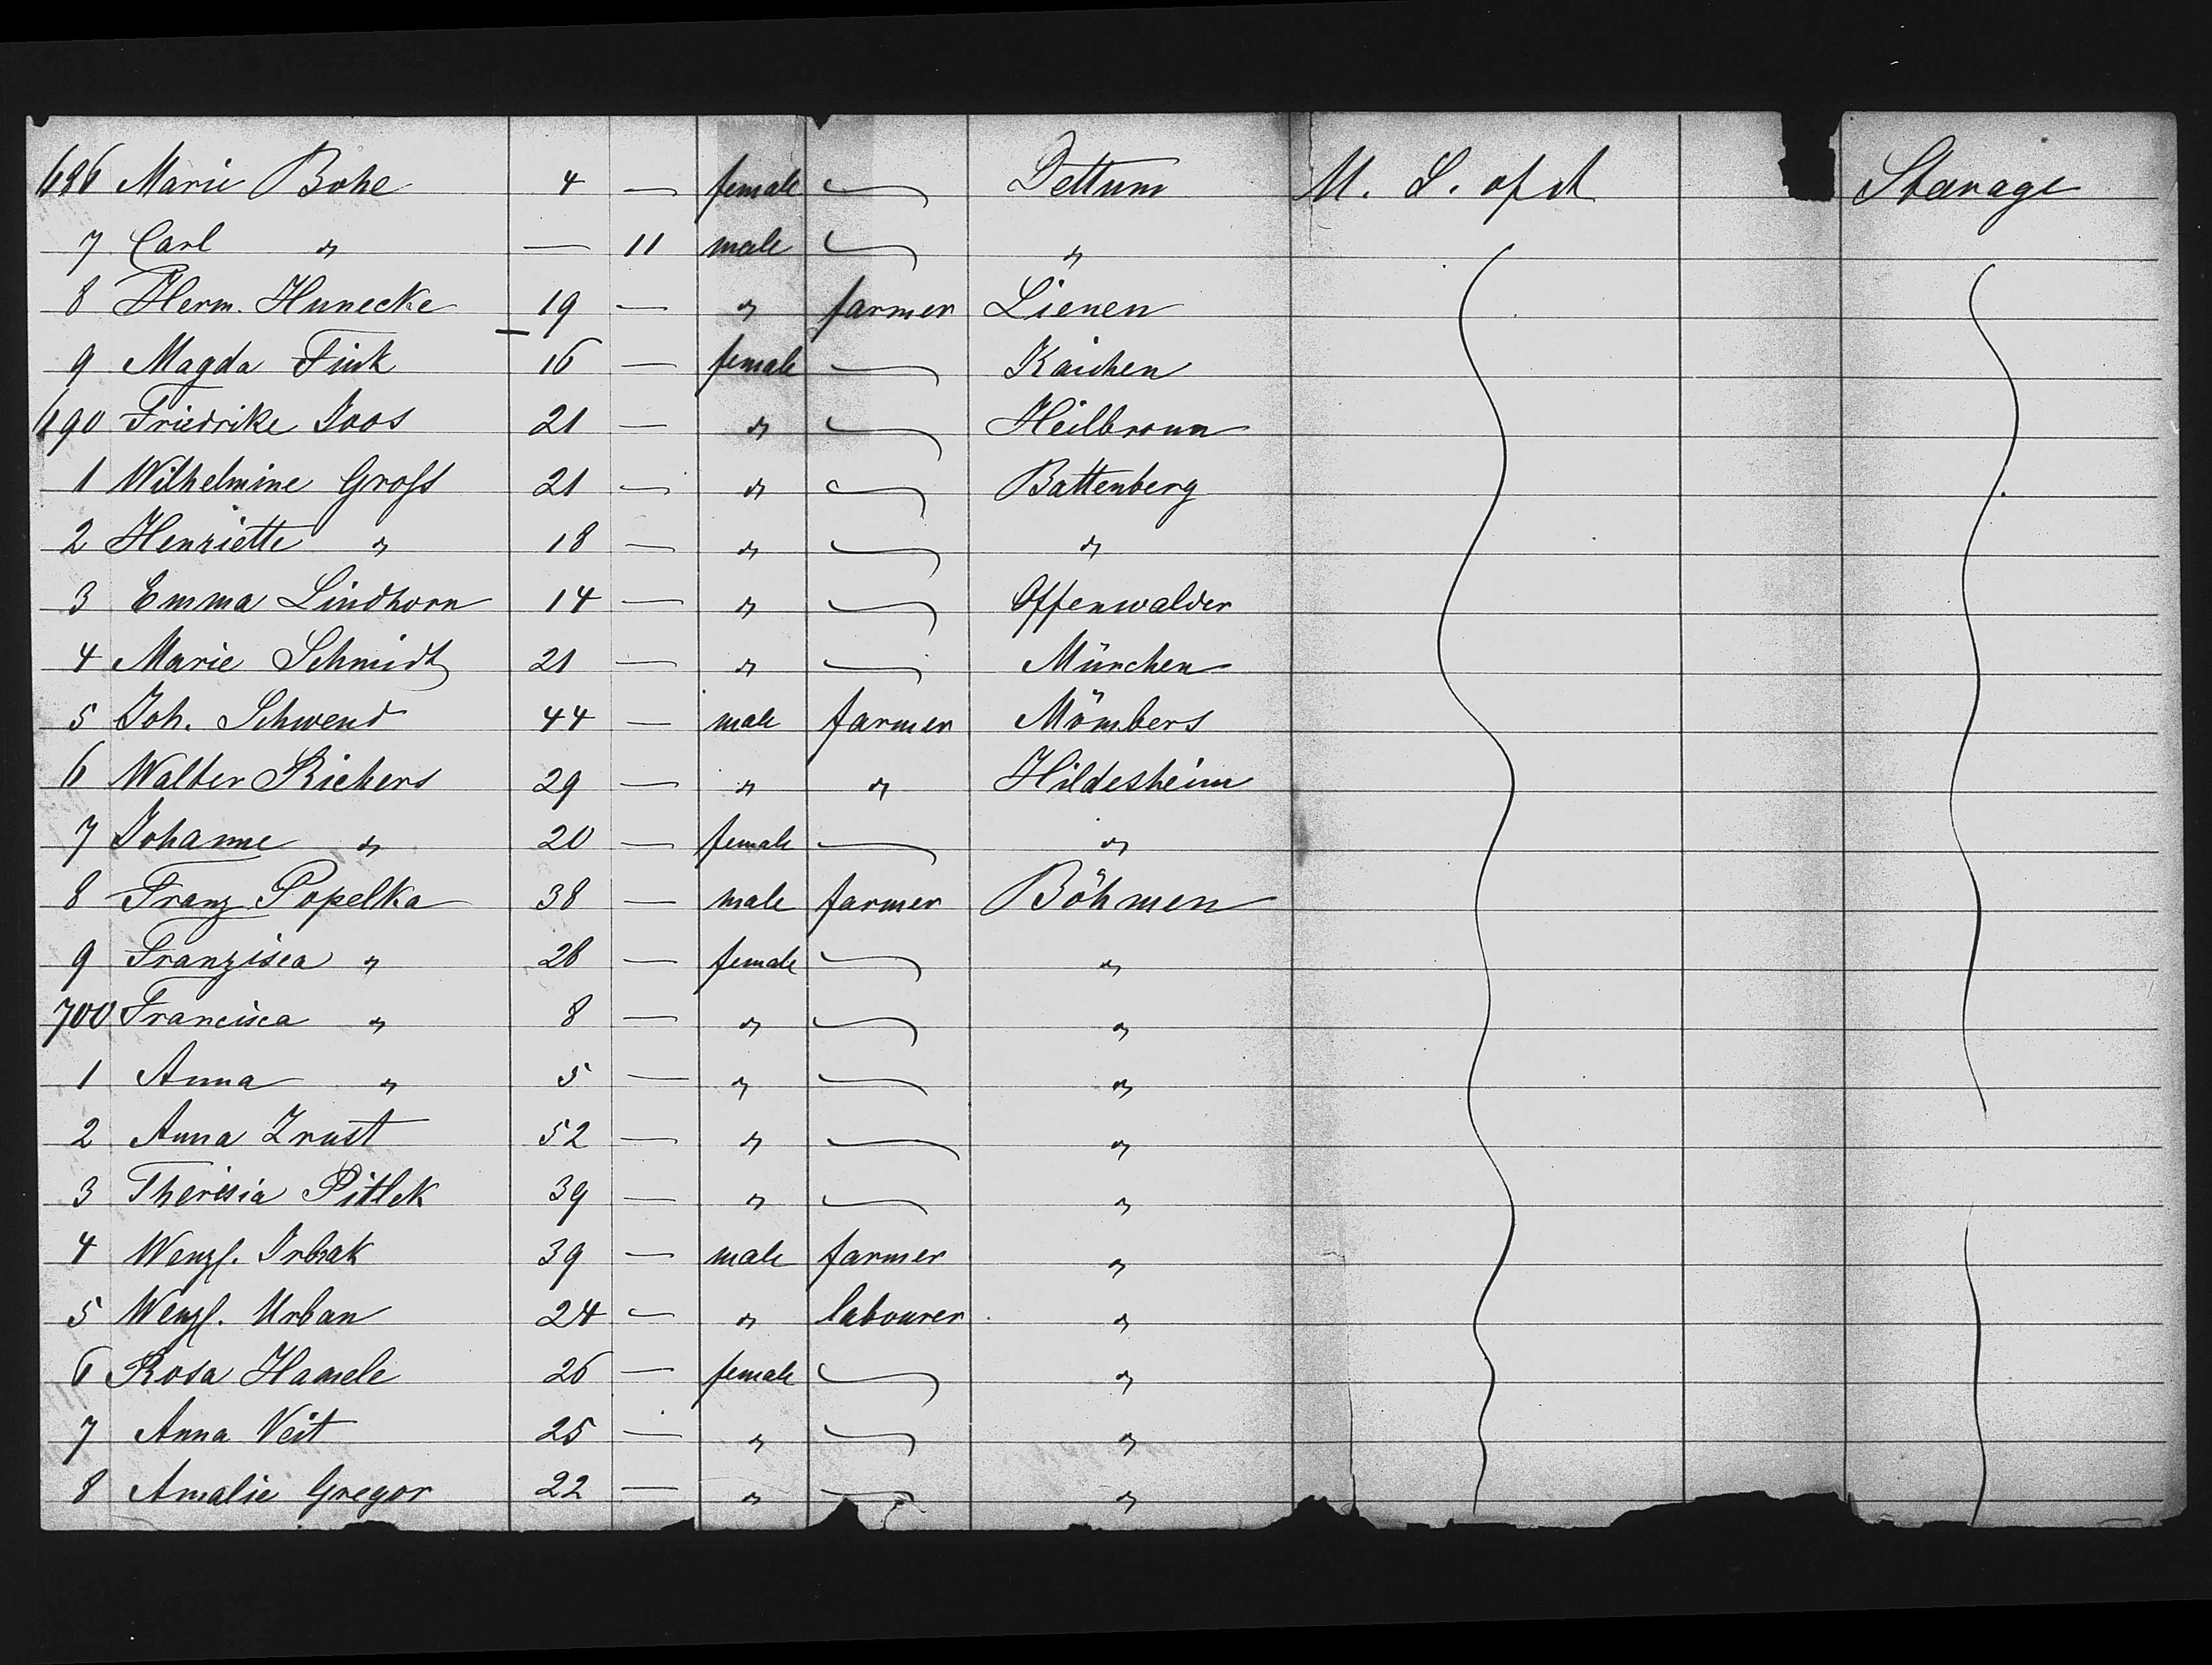 686 Marie Bohe 4 — female — Dettum U. S. of A Steerage
7 Carl " — 11 male — "
8 Herm. Hunecke 19 — " farmer Lienen
9 Magda Fink 16 — female — Kaichen
690 Friedrike Joos 21 — " — Heilbronn
1 Wilhelmine Groß 21 — " — Battenberg
2 Henriette " 18 — " — "
3 Emma Lindhorn 14 — " — Offenwalder
4 Marie Schmidt 21 — " — München
5 Joh. Schwend 44 — male farmer Mömbers
6 Walter Riekers 29 — " " Hildesheim
7 Johanne " 20 — female — "
8 Franz Popelka 38 — male farmer Böhmen
9 Franzisca " 28 — female — "
700 Francisca " 8 — " — "
1 Anna " 5 — " — "
2 Anna Zrust 52 — " — "
3 Theresia Pitlek 39 — " — "
4 Wenzl. 39 — male farmer "
5 Wenzl. Urban 24 — " labourer "
6 Rosa Hamele 26 — female — "
7 Anna Veit 25 — " — "
8 Amalie Gregor 22 — " — "